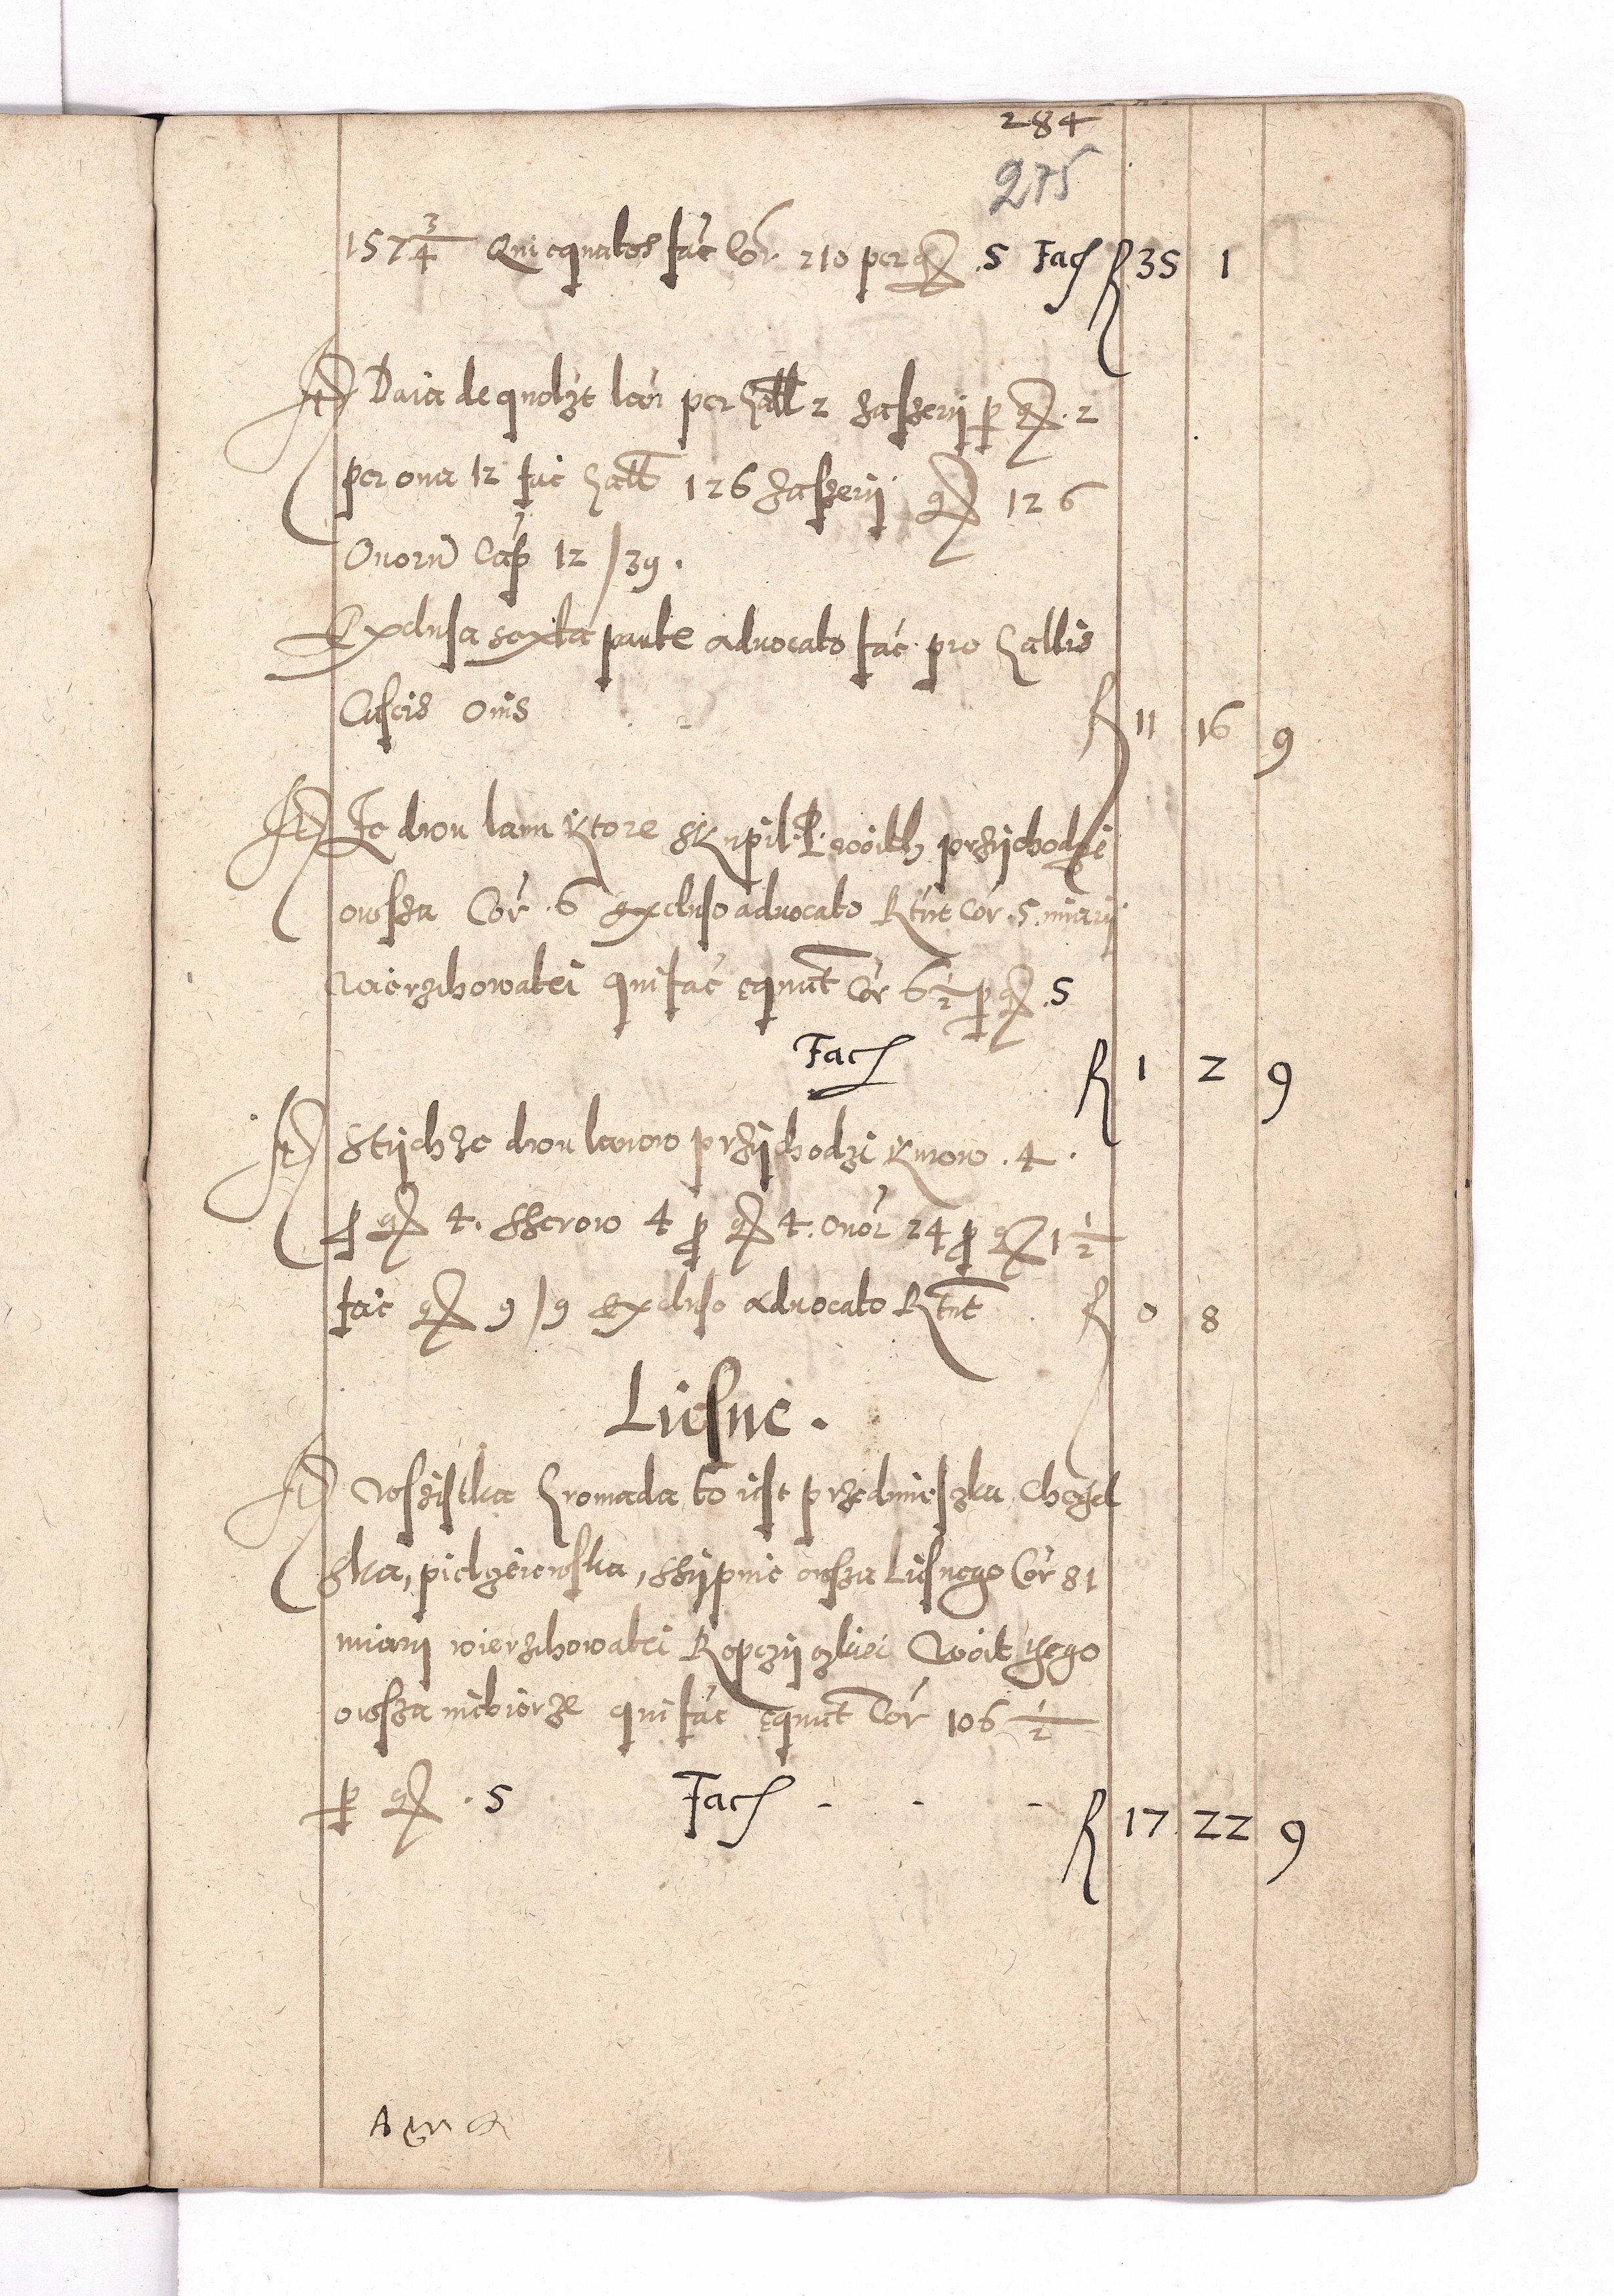 284
275
157 3/4 Qui equatos fac Cor 210 per g 5 Fac R 35 1
It Daia de quolzt lan per Gall 2 zaszery p g . 2
per oua 12 fac Gall 126 zaszery g 126
Ouoru Cap 12 / 39 .
Exclusa sexta parte aduocato fac pro Gallis
Caseis Ouis R 11 16 9
It Ze dwu lanu ktore skupil P woith przychodzi
owsza Cor . 6 excluso aduocato Rtnt Cor . 5 . miary
wierzchowatei qui fac equnt Cor 6 1/2 p g . 5
Fac R 1 2 9
It Stychze dwu lanow przychodzi kurow . 4 .
p g 4 . sserow 4 p g 4 . ouor 24 p g 1 1/2
fac g 9 / 9 excluso aduocato Rtnt R 0 8
Liesne .
It wszistka Gromada to iest przedmieszka, Chechel
ska, pietzeiewska, ssypnie owsza Liesnego Cor 81
miary wierzchowatei Ropczyczkiei Woit tego
owsza niebierze qui fac equnt Cor 106 1/2
p g . 5 Fac - - - R 17 22 9